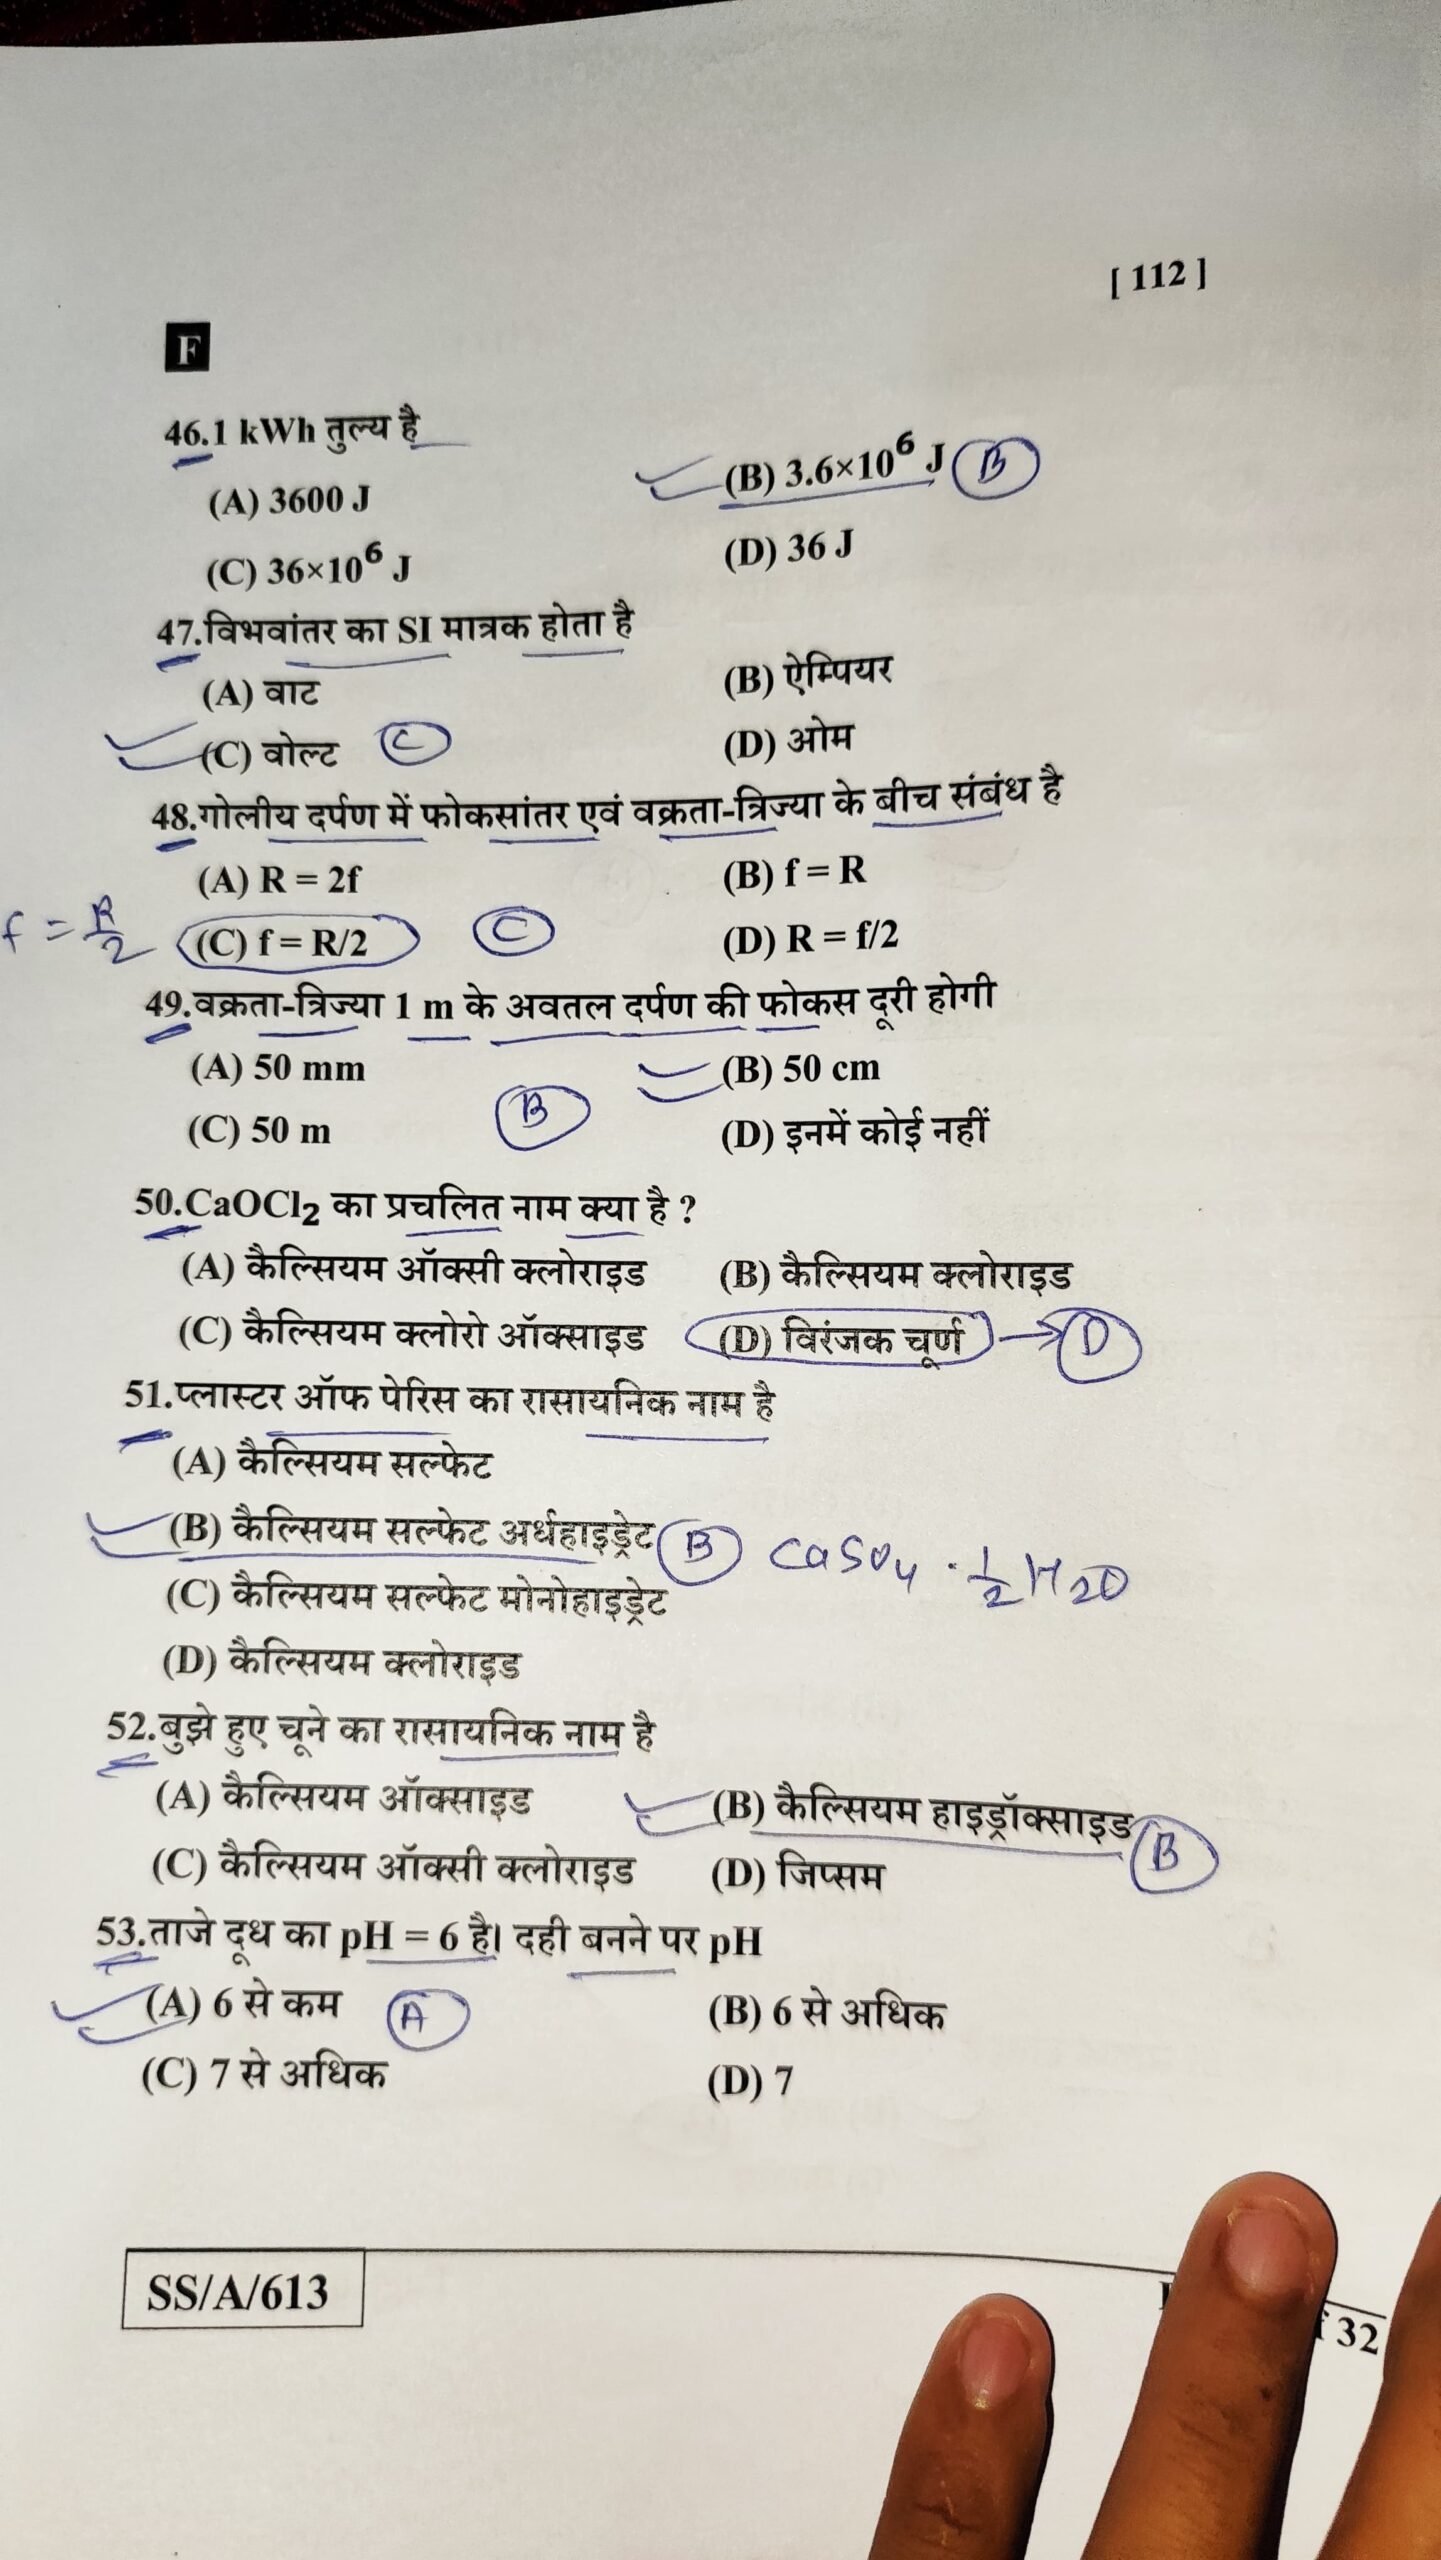 [ 112 ]
F
46.1 kWh तुल्य है
(A) 3600 J (B) 3.6×10⁶ J B
(C) 36×10⁶ J (D) 36 J
47.विभवांतर का SI मात्रक होता है
(A) वाट (B) ऐम्पियर
(C) वोल्ट C (D) ओम
48.गोलीय दर्पण में फोकसांतर एवं वक्रता-त्रिज्या के बीच संबंध है
(A) R = 2f (B) f = R
f = R/2 (C) f = R/2 C (D) R = f/2
49.वक्रता-त्रिज्या 1 m के अवतल दर्पण की फोकस दूरी होगी
(A) 50 mm (B) 50 cm
(C) 50 m B (D) इनमें कोई नहीं
50.CaOCl₂ का प्रचलित नाम क्या है ?
(A) कैल्सियम ऑक्सी क्लोराइड (B) कैल्सियम क्लोराइड
(C) कैल्सियम क्लोरो ऑक्साइड (D) विरंजक चूर्ण → D
51.प्लास्टर ऑफ पेरिस का रासायनिक नाम है
(A) कैल्सियम सल्फेट
(B) कैल्सियम सल्फेट अर्धहाइड्रेट B CaSO₄ . 1/2 H₂O
(C) कैल्सियम सल्फेट मोनोहाइड्रेट
(D) कैल्सियम क्लोराइड
52.बुझे हुए चूने का रासायनिक नाम है
(A) कैल्सियम ऑक्साइड (B) कैल्सियम हाइड्रॉक्साइड B
(C) कैल्सियम ऑक्सी क्लोराइड (D) जिप्सम
53.ताजे दूध का pH = 6 है। दही बनने पर pH
(A) 6 से कम A (B) 6 से अधिक
(C) 7 से अधिक (D) 7
SS/A/613
32